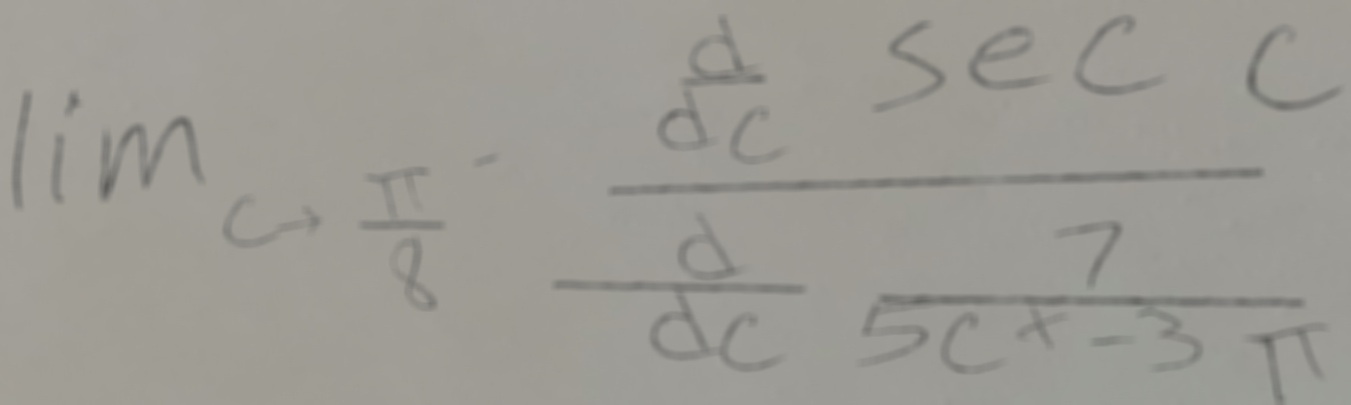 \lim_{c \to \frac{\pi}{8}^{-}} \frac{\frac{d}{dc} \sec c}{\frac{d}{dc} \frac{7}{5c + -3\pi}}